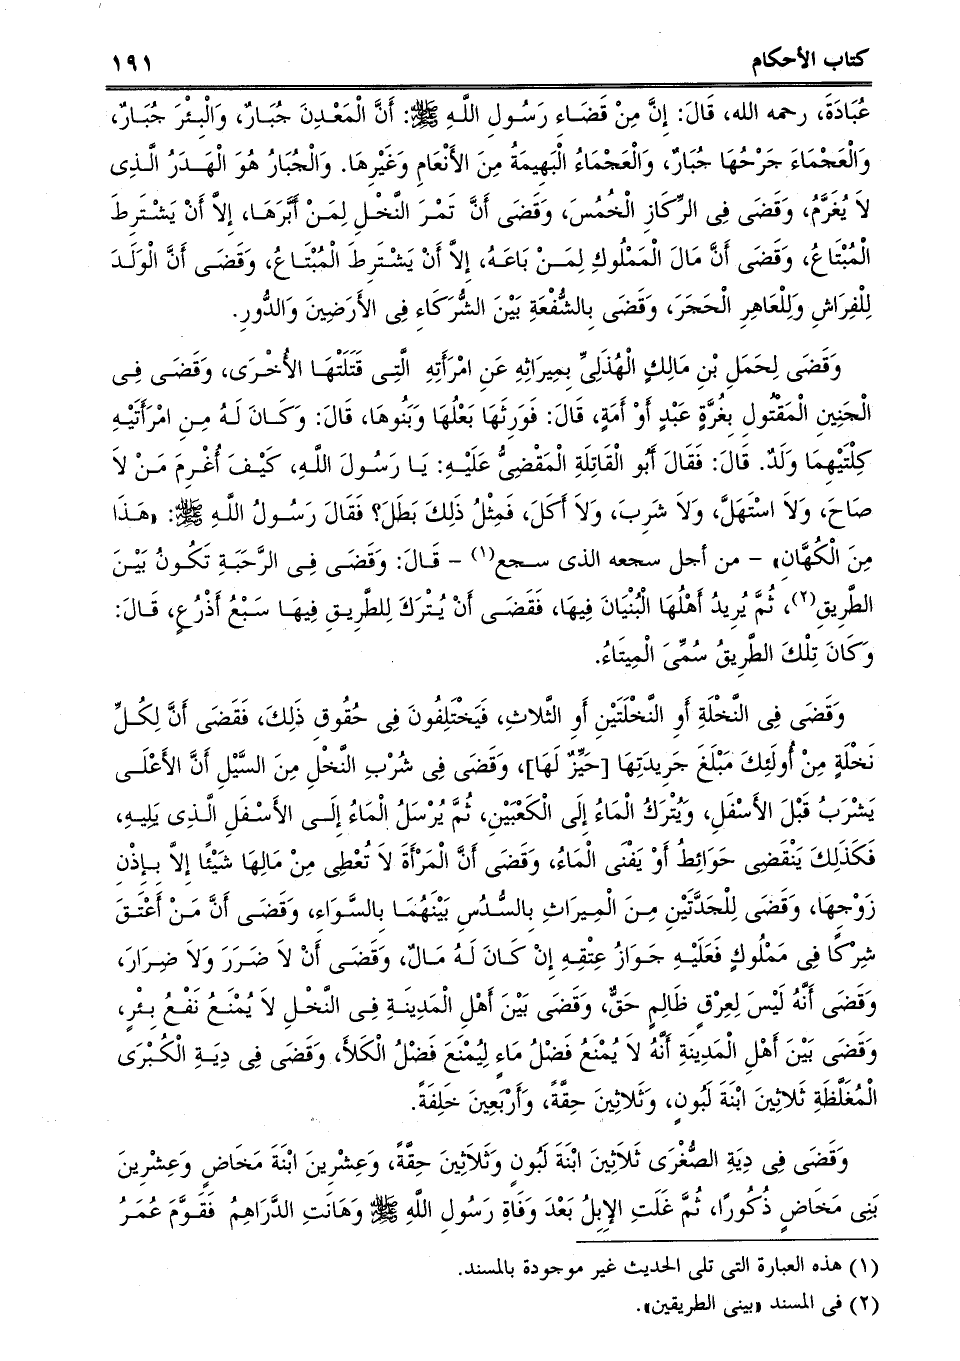 كتاب الأحكام ١٩١
عُبَادَةَ، رحمه الله، قَالَ: إِنَّ مِنْ قَضَاءِ رَسُولِ اللَّهِ ﷺ: أَنَّ الْمَعْدِنَ جُبَارٌ، وَالْبِئْرَ جُبَارٌ،
وَالْعَجْمَاءَ جَرْحُهَا جُبَارٌ، وَالْعَجْمَاءُ الْبَهِيمَةُ مِنَ الأَنْعَامِ وَغَيْرِهَا. وَالْجُبَارُ هُوَ الْهَدَرُ الَّذِى
لاَ يُغَرَّمُ، وَقَضَى فِى الرِّكَازِ الْخُمُسَ، وَقَضَى أَنَّ تَمْرَ النَّخْلِ لِمَنْ أَبَّرَهَا، إِلاَّ أَنْ يَشْتَرِطَ
الْمُبْتَاعُ، وَقَضَى أَنَّ مَالَ الْمَمْلُوكِ لِمَنْ بَاعَهُ، إِلاَّ أَنْ يَشْتَرِطَ الْمُبْتَاعُ، وَقَضَى أَنَّ الْوَلَدَ
لِلْفِرَاشِ وَلِلْعَاهِرِ الْحَجَرَ، وَقَضَى بِالشُّفْعَةِ بَيْنَ الشُّرَكَاءِ فِى الأَرَضِينَ وَالدُّورِ.
وَقَضَى لِحَمَلِ بْنِ مَالِكٍ الْهُذَلِىِّ بِمِيرَاثِهِ عَنِ امْرَأَتِهِ الَّتِى قَتَلَتْهَا الأُخْرَى، وَقَضَى فِى
الْجَنِينِ الْمَقْتُولِ بِغُرَّةٍ عَبْدٍ أَوْ أَمَةٍ، قَالَ: فَوَرِثَهَا بَعْلُهَا وَبَنُوهَا، قَالَ: وَكَانَ لَهُ مِنِ امْرَأَتَيْهِ
كِلْتَيْهِمَا وَلَدٌ. قَالَ: فَقَالَ أَبُو الْقَاتِلَةِ الْمَقْضِىُّ عَلَيْهِ: يَا رَسُولَ اللَّهِ، كَيْفَ أُغْرِمَ مَنْ لاَ
صَاحَ، وَلاَ اسْتَهَلَّ، وَلاَ شَرِبَ، وَلاَ أَكَلَ، فَمِثْلُ ذَلِكَ بَطَلَ؟ فَقَالَ رَسُولُ اللَّهِ ﷺ: «هَذَا
مِنَ الْكُهَّانِ» - من أجل سجعه الذى سجع(١) - قَالَ: وَقَضَى فِى الرَّحَبَةِ تَكُونُ بَيْنَ
الطَّرِيقِ(٢)، ثُمَّ يُرِيدُ أَهْلُهَا الْبُنْيَانَ فِيهَا، فَقَضَى أَنْ يُتْرَكَ لِلطَّرِيقِ فِيهَا سَبْعُ أَذْرُعٍ، قَالَ:
وَكَانَ تِلْكَ الطَّرِيقُ سُمِّىَ الْمِيتَاءُ.
وَقَضَى فِى النَّخْلَةِ أَوِ النَّخْلَتَيْنِ أَوِ الثَّلاثِ، فَيَخْتَلِفُونَ فِى حُقُوقِ ذَلِكَ، فَقَضَى أَنَّ لِكُلِّ
نَخْلَةٍ مِنْ أُولَئِكَ مَبْلَغَ جَرِيدَتِهَا [حَيِّزٌ لَهَا]، وَقَضَى فِى شُرْبِ النَّخْلِ مِنَ السَّيْلِ أَنَّ الأَعْلَى
يَشْرَبُ قَبْلَ الأَسْفَلِ، وَيُتْرَكُ الْمَاءُ إِلَى الْكَعْبَيْنِ، ثُمَّ يُرْسَلُ الْمَاءُ إِلَى الأَسْفَلِ الَّذِى يَلِيهِ،
فَكَذَلِكَ يَنْقَضِى حَوَائِطُ أَوْ يَفْنَى الْمَاءُ، وَقَضَى أَنَّ الْمَرْأَةَ لاَ تُعْطِى مِنْ مَالِهَا شَيْئًا إِلاَّ بِإِذْنِ
زَوْجِهَا، وَقَضَى لِلْجَدَّتَيْنِ مِنَ الْمِيرَاثِ بِالسُّدُسِ بَيْنَهُمَا بِالسَّوَاءِ، وَقَضَى أَنَّ مَنْ أَعْتَقَ
شِرْكًا فِى مَمْلُوكٍ فَعَلَيْهِ جَوَازُ عِتْقِهِ إِنْ كَانَ لَهُ مَالٌ، وَقَضَى أَنْ لاَ ضَرَرَ وَلاَ ضِرَارَ،
وَقَضَى أَنَّهُ لَيْسَ لِعِرْقٍ ظَالِمٍ حَقٌّ، وَقَضَى بَيْنَ أَهْلِ الْمَدِينَةِ فِى النَّخْلِ لاَ يُمْنَعُ نَفْعُ بِئْرٍ،
وَقَضَى بَيْنَ أَهْلِ الْمَدِينَةِ أَنَّهُ لاَ يُمْنَعُ فَضْلُ مَاءٍ لِيُمْنَعَ فَضْلُ الْكَلأَ، وَقَضَى فِى دِيَةِ الْكُبْرَى
الْمُغَلَّظَةِ ثَلاَثِينَ ابْنَةَ لَبُونٍ، وَثَلاَثِينَ حِقَّةً، وَأَرْبَعِينَ خَلِفَةً.
وَقَضَى فِى دِيَةِ الصُّغْرَى ثَلاَثِينَ ابْنَةَ لَبُونٍ وَثَلاَثِينَ حِقَّةً، وَعِشْرِينَ ابْنَةَ مَخَاضٍ وَعِشْرِينَ
بَنِى مَخَاضٍ ذُكُورًا، ثُمَّ غَلَتِ الإِبِلُ بَعْدَ وَفَاةِ رَسُولِ اللَّهِ ﷺ وَهَانَتِ الدَّرَاهِمُ فَقَوَّمَ عُمَرُ
(١) هذه العبارة التى تلى الحديث غير موجودة بالمسند.
(٢) فى المسند «بينى الطريقين».